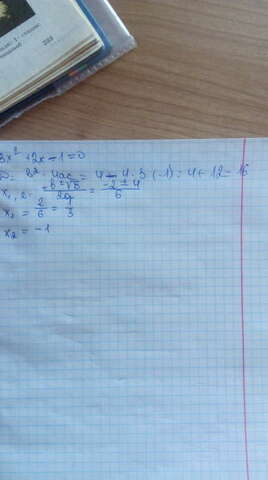 3x² + 2x - 1 = 0
D = b² - 4ac = 4 - 4·3 (-1) = 4 + 12 = 16
x₁,₂ = -b ± √D / 2a = -2 ± 4 / 6
x₁ = 2/6 = 1/3
x₂ = -1